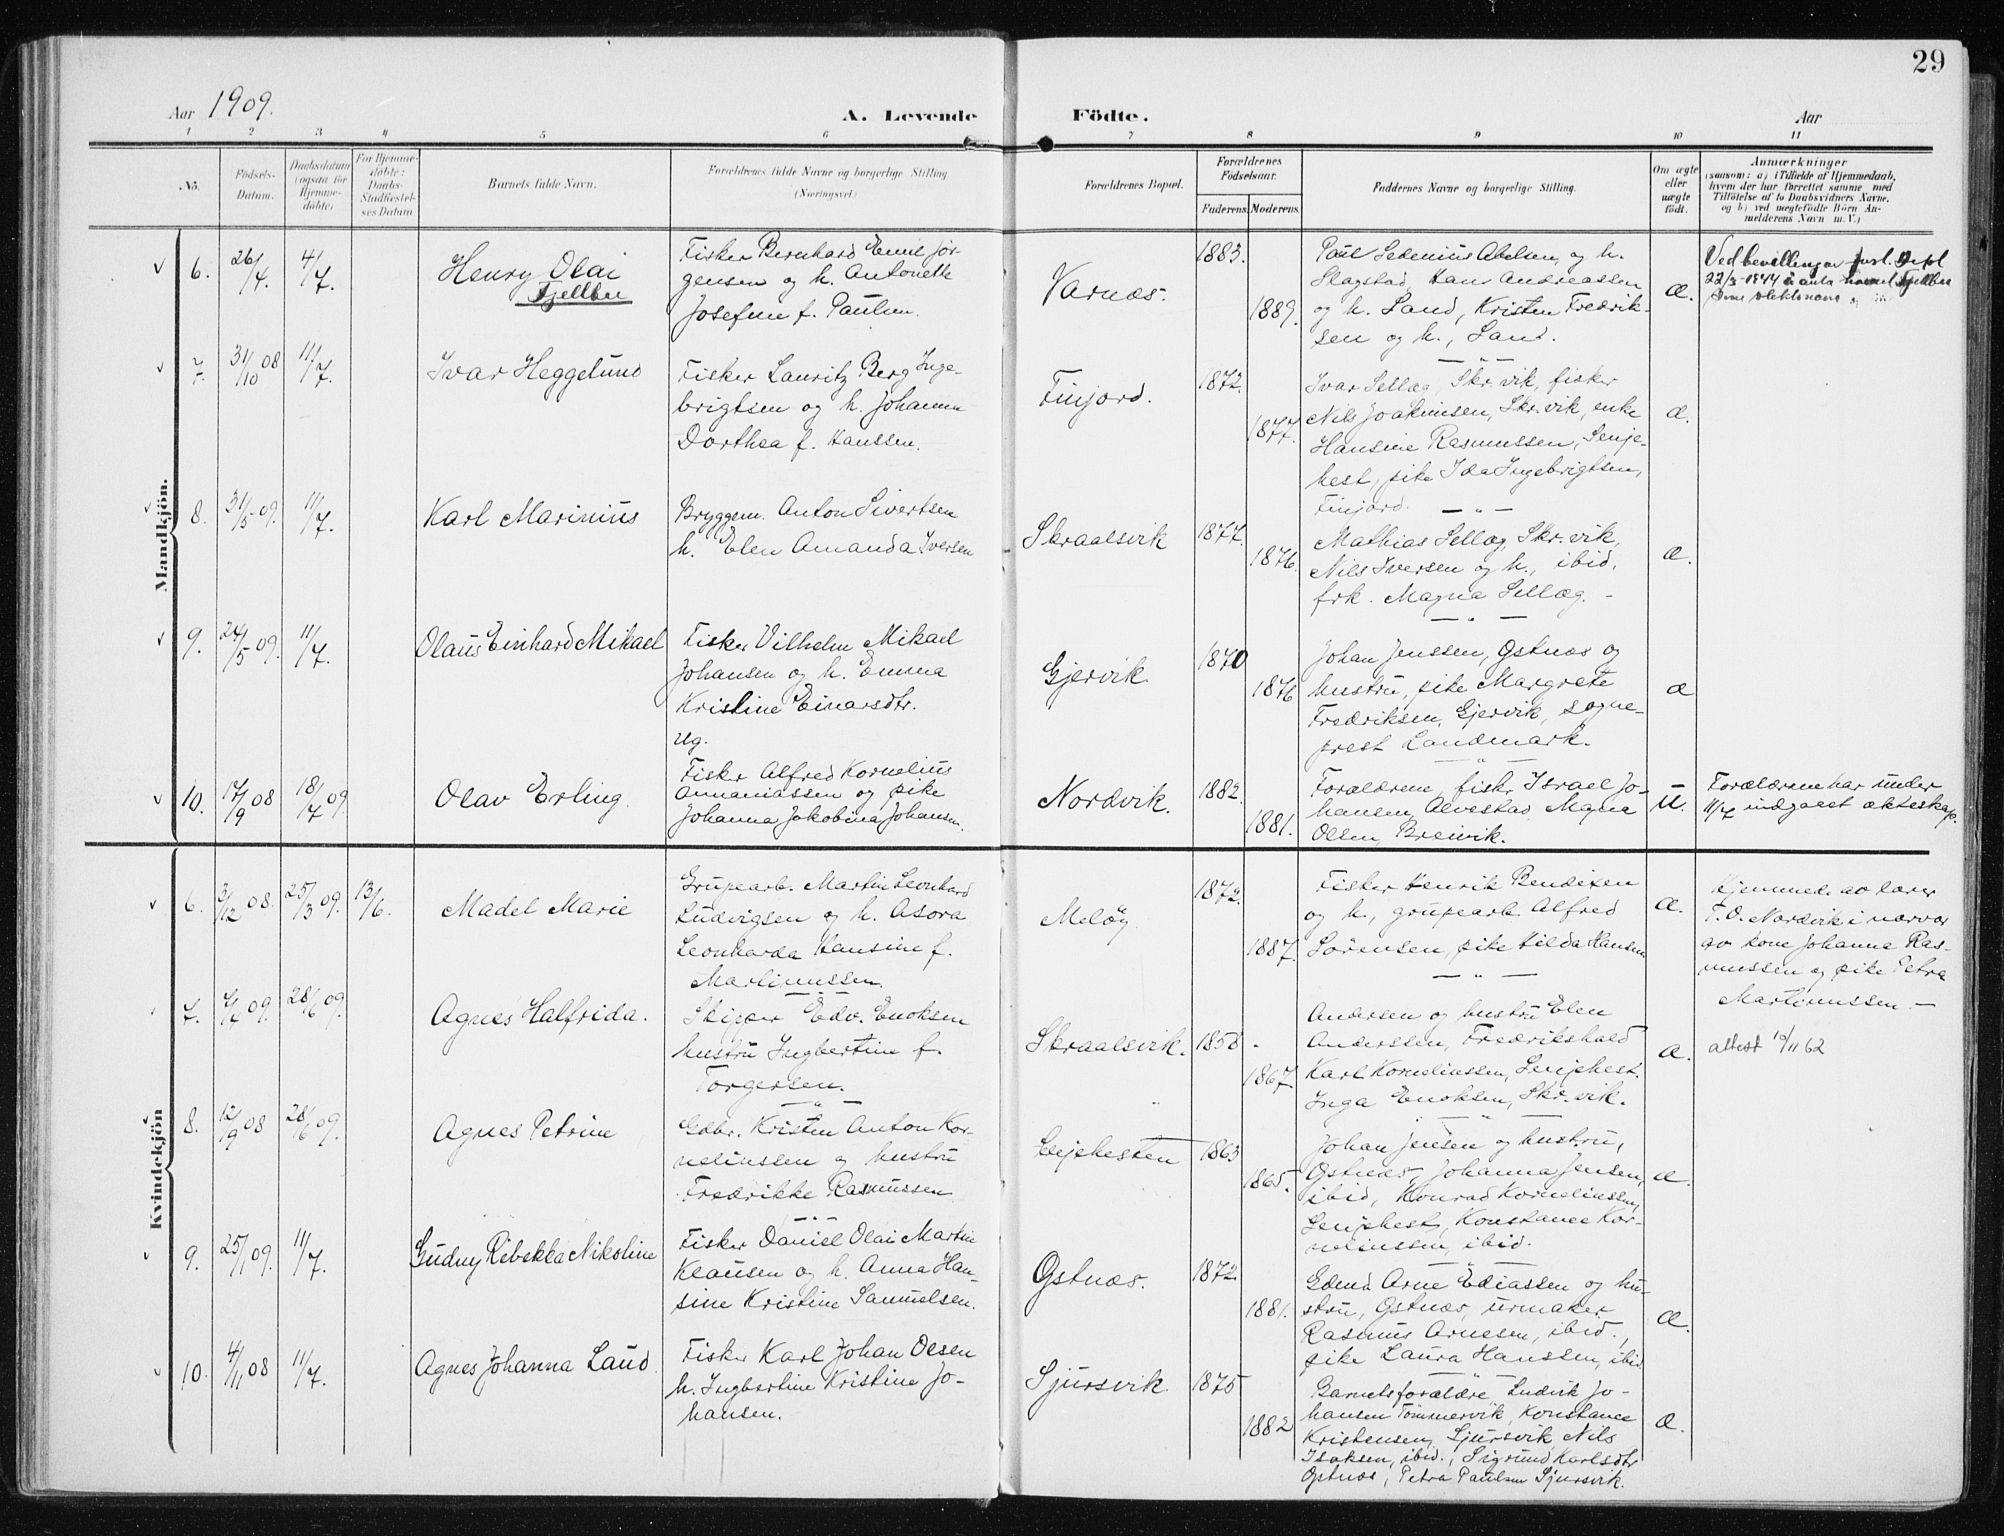 29
Aar 1909.
A. Levende Födte.
Aar
1 2 3 4 5 6 7 8 9 10 11
No.
Födsels-
Datum.
Daabsdatum
(ogsaa for
Hjemme-
döbte)
For Hjemme-
döbte:
Daabs-
Stadfæstel-
ses Datum
Barnets fulde Navn.
Forældrenes fulde Navne og borgerlige Stilling
(Næringsvei.)
Forældrenes Bopæl.
Forældrenes
Födselsaar.
Faderens. Moderens.
Faddernes Navne og borgerlige Stilling.
Om ægte
eller
uægte
födt.
Anmærkninger
(saasom: a) i Tilfælde af Hjemmedaab,
hvem der har forrettet samme med
Tilföielse af to Daabsvidners Navne.
og b) ved uægtefödte Börn An-
melderens Navn m. V.)
Mandkjön.
6. 26/4. 4/7.
Henry Olai
Fjellbu
Fisker Bernhard Emil Jör-
gensen og h. Antonette
Josefine f. Paulsen.
Varnæs.
1883.
1889.
Paul Sedenius Abelsen og h.
Slagstad, Hans Andreassen
og h. Sand, Kristen Fredrik-
sen og h., Sand.
æ.
Ved bevilling av Just. Dept
22/3-1944 å anta navnet Fjellbu
som slektsnavn
7. 31/10 08 11/7.
Ivar Heggelund
Fisker Lauritz Berg Inge-
brigtsen og h. Johanna
Dorthea f. Hanssen.
Finjord.
1872.
1877.
Ivar Selläg, Skr.vik, fisker
Nils Joakimsen, Skr.vik, enke
Hansine Rasmussen, Senje-
hest, pike Ida Ingebrigtsen,
Finjord.
æ.
8. 31/5 09. 11/7.
Karl Marinius
Bryggem. Anton Sivertsen
h. Elen Amanda Iversen
Skraalsvik
1877.
1876.
Mathias Sellæg, Skr.vik,
Nils Iversen og h., ibid,
frk. Magna Sellæg. -
æ.
9. 24/5 09. 11/7.
Olaus Einhard Mikael
Fisker Vilhelm Mikael
Johansen og h. Emma
Kristine Einarsdtr.
Gjervik
1870
1876
Johan Jenssen, Gstnæs og
hustru, pike Margrete
Fredriksen, Gjervik, sogne-
prest Landmark.
æ
10. 17/9 08 18/7 09.
Olav Erling.
Ug.
Fisker Alfred Kornelius
Annaniassen og pike
Johanna Jakobina Johansen.
Nordvik.
1882.
1881.
Forældrene, fisker Israel Jo-
hansen, Alvestad, Magna
Olsen, Breivik.
u.
Forældrene har under
11/7 indgaaet ækteskap.
Kvindekjön
6. 3/12 08. 25/3 09. 13/6.
Madel Marie
Grubearb. Martin Leonhard
Ludvigsen og h. Asora
Leonharda Hansine f.
Martinussen.
Melöy.
1872.
1887.
Fisker Henrik Bendixen
og h., grubearb. Alfred
Sörensen, pike Hilda Hansen
æ.
Hjemmed. av lærer
T. O. Nordvik i nærvær
av kone Johanna Ras-
mussen og pike Petra
Martinussen -
7. 28/6 09.
Agnes Halfrida.
Skiper Edv. Enoksen
hustru Ingbertine f.
Torgersen.
Skraalsvik.
1858
1867.
Andersen og hustru Elen
Anderssen, Fredrikshald
Karl Kornelinssen, Senjehest.
Inga Enoksen, Skr.vik.
æ.
attest 10/11 62
8. 12/9 08 28/6 09.
Agnes Petrine
Gdbr. Kristen Anton Kor-
nelinssen og hustru
Fredrikke Rasmussen
Senjehesten
1863
1865.
Johan Jensen og hustru,
Gstnæs, Johanna Jensen,
ibid, Konrad Kornelinssen,
Senjehest, Konstance Kor-
nelinssen, ibid.
æ.
9. 25/1 09. 11/7.
Gudny Rebekka Nikoline
Fisker Daniel Olai Martin
Klausen og h. Anna Han-
sine Kristine Samuelsen.
Gstnæs.
1872
1881.
Gdmd. Arne Eliassen og hu-
stru, Gstnæs, urmaker
Rasmus Arnesen, ibid.,
pike Laura Hanssen, ibid.
æ.
10. 4/11 08 11/7.
Agnes Johanna Laud
Fisker Karl Johan Olsen
h. Ingbertine Kristine Jo-
hansen.
Sjursvik.
1875
1882
Barnets forældre, Ludvik Jo-
hansen Tömmervik, Konstance
Kristensen, Sjursvik, Nils
Isaksen, ibid., Sigrund Karlsdtr
Gstnæs, Petra Paulsen Sjursvik.
æ.